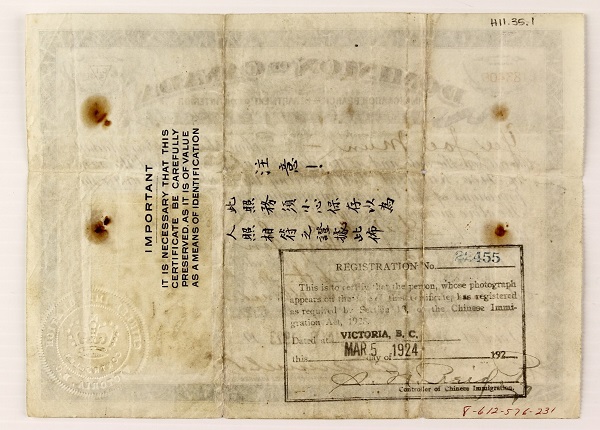 H11.35.1
IMPORTANT
IT IS NECESSARY THAT THIS
CERTIFICATE BE CAREFULLY
PRESERVED AS IT IS OF VALUE
AS A MEANS OF IDENTIFICATION
注意!
此照務須小心保存以為
人照相符之證據此佈
REGISTRATION No. 455
This is to certify that the person, whose photograph
appears on the of this certificate, has registered
as required by Section of the Chinese Immi-
gration Act, 1923.
Dated at VICTORIA, B. C.
this MAR 5 1924 day of 192
Controller of Chinese Immigration.
8-612-576-231